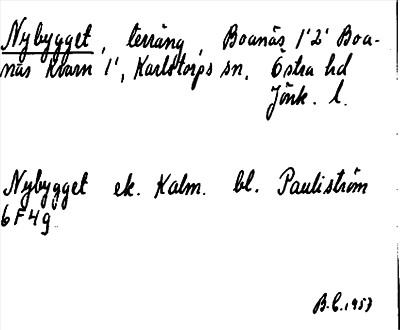 Nybygget, terräng, Boanäs 1'2' Boa-
näs Kvarn 1', Karlstorps sn, Östra hd
Jönk. l.
Nybygget ek. Kalm. bl. Pauliström
6F4g
B.C. 1953